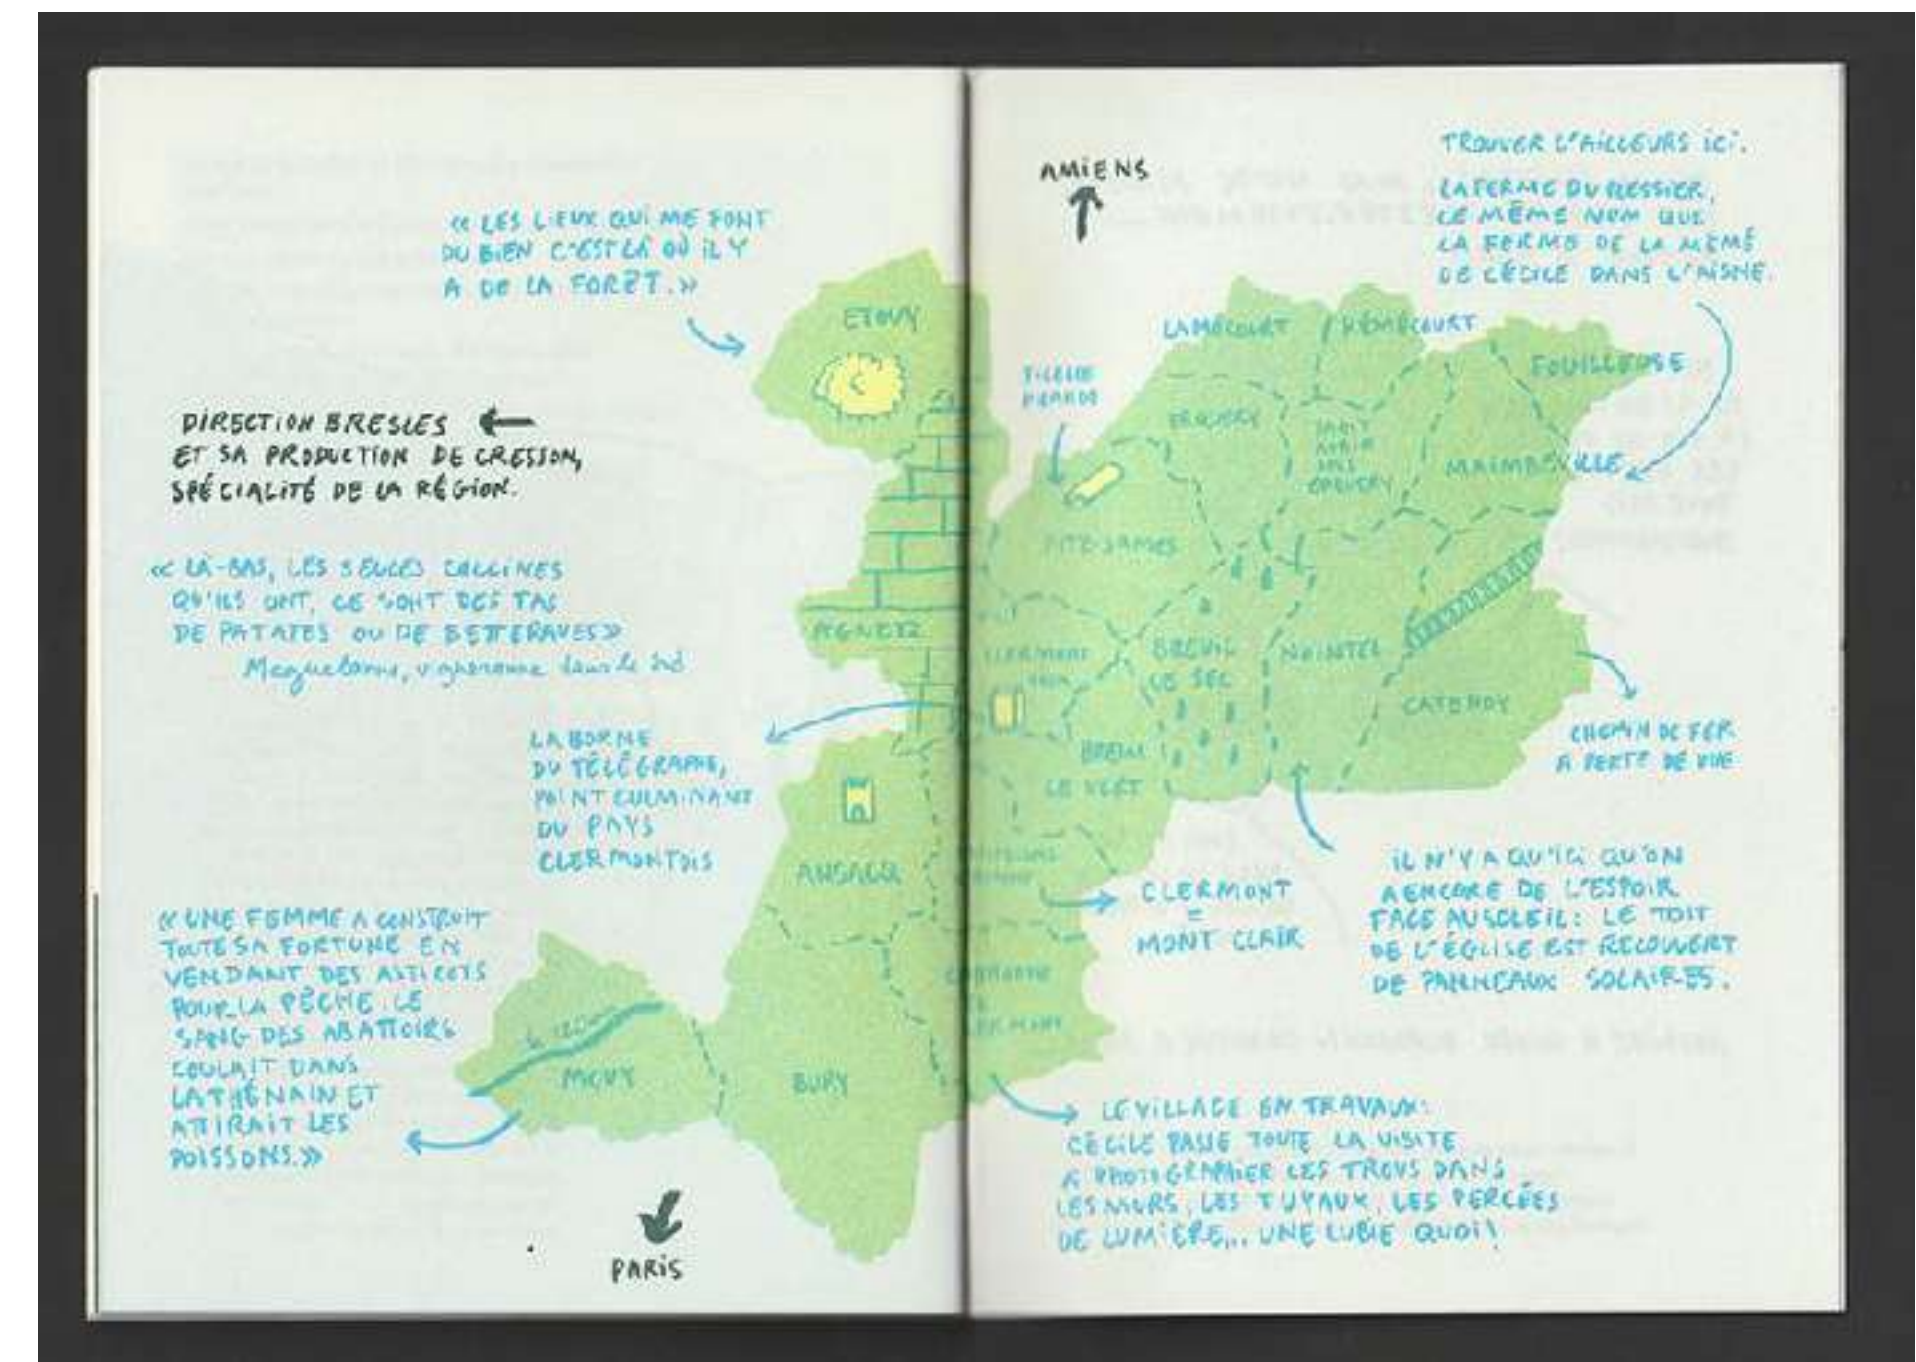 « LES LIEUX QUI ME FONT
DU BIEN C'EST LÀ OÙ IL Y
A DE LA FORÊT. »
DIRECTION BRESLES ←
ET SA PRODUCTION DE CRESSON,
SPÉCIALITÉ DE LA RÉGION.
« LÀ-BAS, LES SEULES COLLINES
QU'ILS ONT, CE SONT DES TAS
DE PATATES OU DE BETTERAVES »
vigneronne dans le sud
LA BORNE
DU TÉLÉGRAPHE,
POINT CULMINANT
DU PAYS
CLERMONTOIS
« UNE FEMME A CONSTRUIT
TOUTE SA FORTUNE EN
VENDANT DES ASTICOTS
POUR LA PÊCHE. LE
SANG DES ABATTOIRS
COULAIT DANS
LATHÉNAIN ET
ATTIRAIT LES
POISSONS. »
ETOUY
AGNETZ
ANSACQ
MOUY
BURY
PARIS
AMIENS
TROUVER L'AILLEURS ICI.
LA FERME DU PLESSIER,
LE MÊME NOM QUE
LA FERME DE LA MÉMÉ
DE CÉCILE DANS L'AISNE.
LAMÉCOURT
RÉMÉCOURT
FOUILLEUSE
ERQUERY
MAIMBEVILLE
FITZ-JAMES
CLERMONT
BREUIL
LE SEC
NOINTEL
CATENOY
BREUIL
LE VERT
CHEMIN DE FER
À PERTE DE VUE
CLERMONT
=
MONT CLAIR
IL N'Y A QU'ICI QU'ON
A ENCORE DE L'ESPOIR
FACE AU SOLEIL : LE TOIT
DE L'ÉGLISE EST RECOUVERT
DE PANNEAUX SOLAIRES.
LE VILLAGE EN TRAVAUX :
CÉCILE PASSE TOUTE LA VISITE
À PHOTOGRAPHIER LES TROUS DANS
LES MURS, LES TUYAUX, LES PERCÉES
DE LUMIÈRE... UNE LUBIE QUOI !